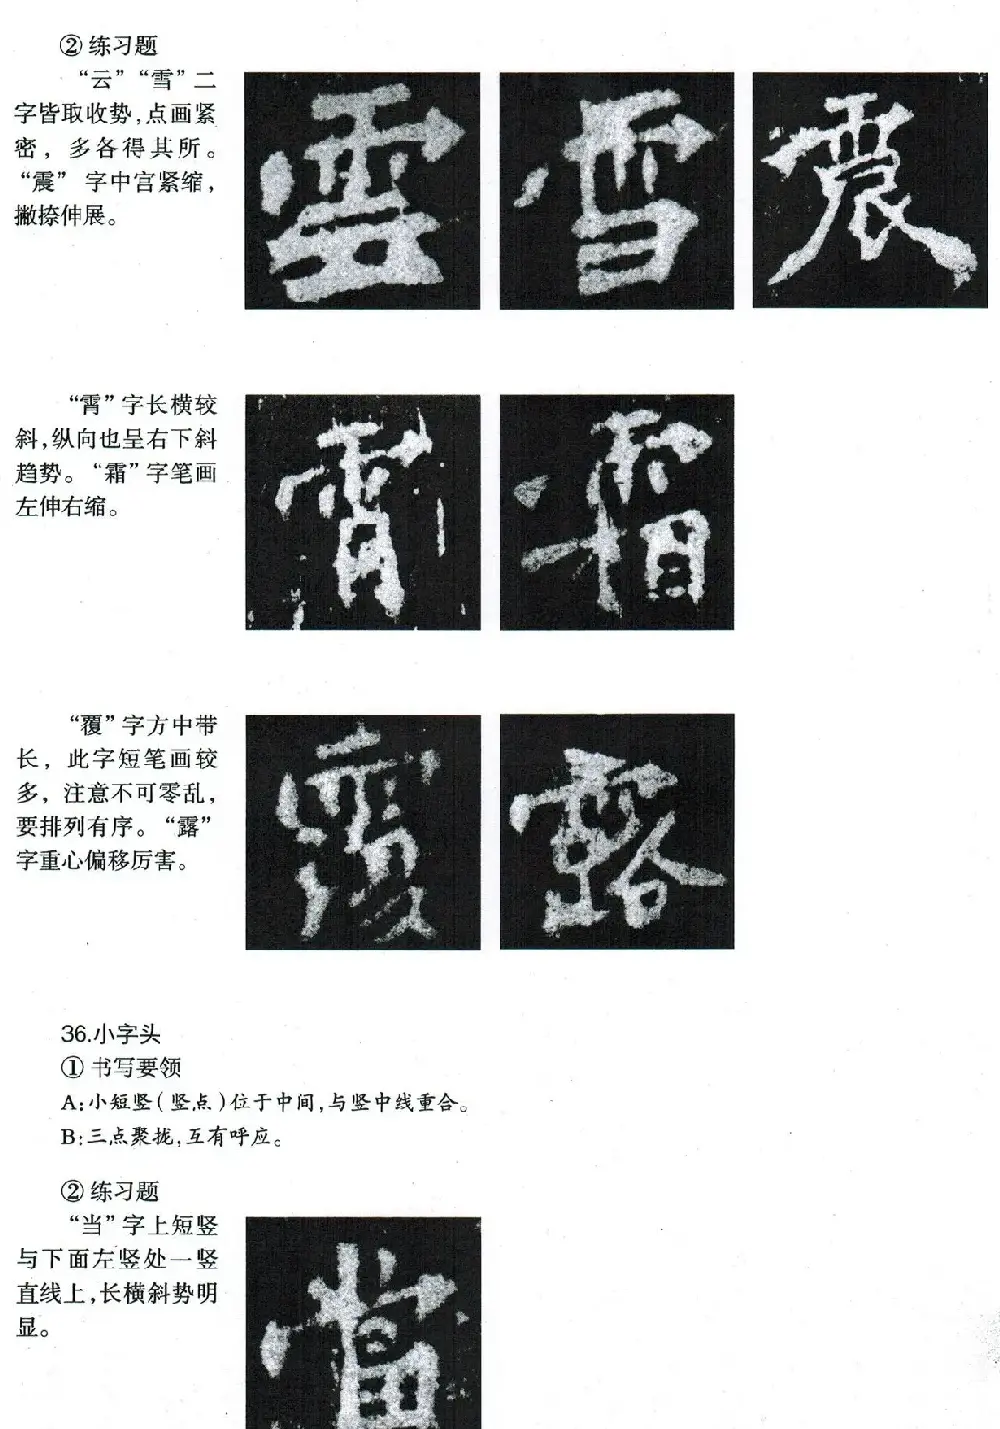 ②练习题
“云”“雪”二
字皆取收势,点画紧
密，多各得其所。
“震”字中宫紧缩，
撇捺伸展。
雲
雪
震
“霄”字长横较
斜,纵向也呈右下斜
趋势。“霜”字笔画
左伸右缩。
霄
霜
“覆”字方中带
长，此字短笔画较
多，注意不可零乱，
要排列有序。“露”
字重心偏移厉害。
覆
露
36.小字头
①书写要领
A:小短竖(竖点)位于中间,与竖中线重合。
B:三点聚拢,互有呼应。
②练习题
“当”字上短竖
与下面左竖处一竖
直线上,长横斜势明
显。
當